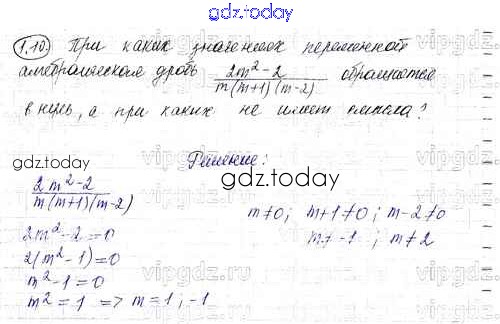 gdz.today
1.10. При каких значениях переменной
алгебраическая дробь (2m²-2)/(m(m+1)(m-2)) обращается
в нуль, а при каких не имеет смысла?
gdz.today
Решение:
(2m²-2)/(m(m+1)(m-2))
gdz.today
m≠0; m+1≠0; m-2≠0
m≠-1; m≠2
2m²-2=0
2(m²-1)=0
m²-1=0
m²=1 => m=1;-1